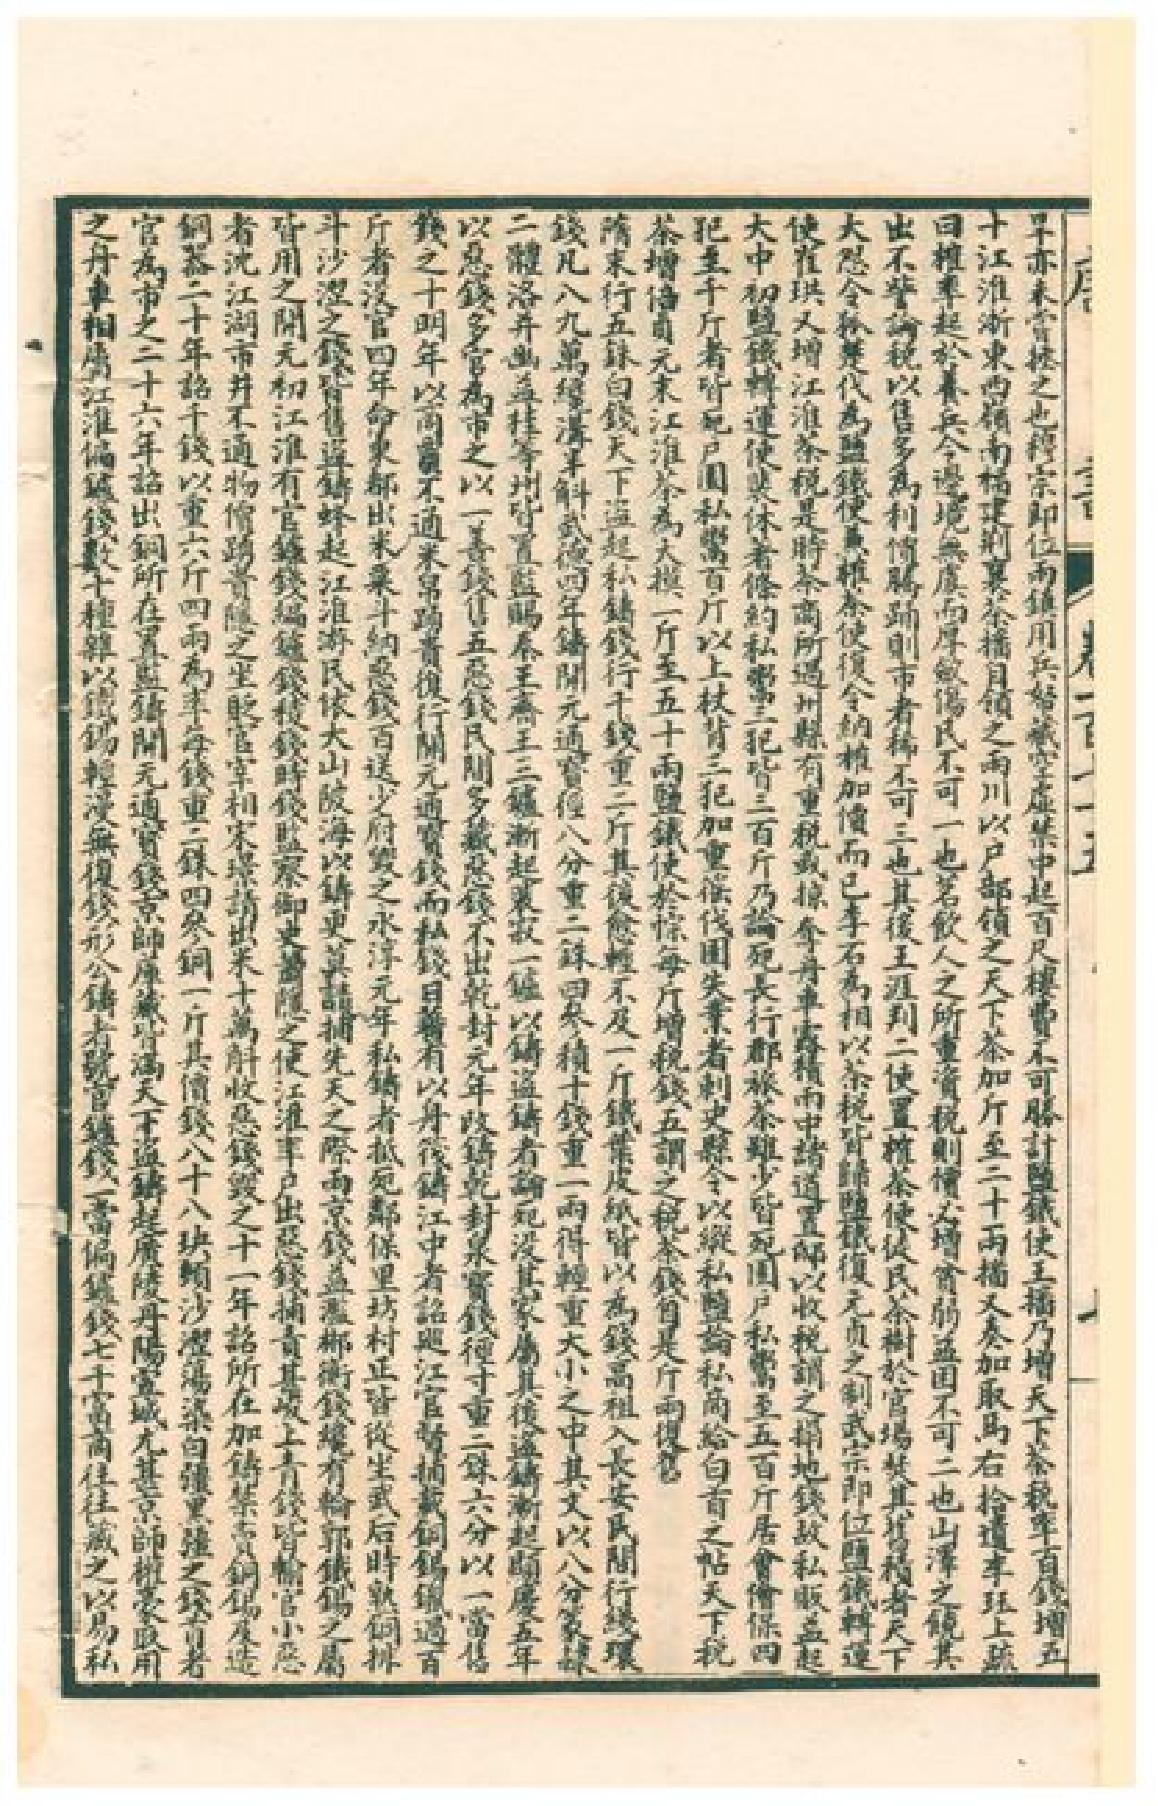 旱亦未嘗拯之也穆宗即位兩鎮用兵帑藏空虛禁中起百尺樓費不可勝計鹽鐵使王播乃增天下茶稅率百錢增五
十江淮浙東西嶺南福建荊襄茶播自領之兩川以戶部領之天下茶加斤至二十兩播又奏加取焉右拾遺李玨上疏
曰榷率起於養兵今邊境無虞而厚斂傷民不可一也茗飲人之所重資稅則價必增貧弱益困不可二也山澤之饒其
出不訾論稅以售多為利價騰踊則市者稀不可三也其後王涯判二使置榷茶使徙民茶樹於官場焚其舊積者天下
大怨令狐楚代為鹽鐵使兼榷茶使復令納榷加價而已李石為相以茶稅皆歸鹽鐵復元貞之制武宗即位鹽鐵轉運
使崔珙又增江淮茶稅是時茶商所過州縣有重稅或掠奪舟車露積雨中諸道置邸以收稅謂之搨地錢故私販益起
大中初鹽鐵轉運使裴休著條約私鬻三犯皆三百斤乃論死長行群旅茶雖少皆死園戶私鬻至五百斤居舍儈保四
犯至千斤者皆死戶園私鬻百斤以上杖背三犯加重徭伐園失業者刺史縣令以縱私鹽論私商給自首之帖天下稅
茶增倍貞元末江淮茶為大摸一斤至五十兩鹽鐵使於悰每斤增稅錢五謂之稅茶錢自是斤兩復舊
隋末行五銖白錢天下盜起私鑄錢行十錢重二斤其後愈輕不及一斤鐵葉皮紙皆以為錢高祖入長安民間行綫環
錢凡八九萬纔滿半斛武德四年鑄開元通寶徑八分重二銖四參積十錢重一兩得輕重大小之中其文以八分篆隸
二體洛并幽益桂等州皆置監賜秦王齊王三鑪裴寂一鑪以鑄盜鑄者論死沒其家屬其後盜鑄漸起顯慶五年
以惡錢多官為市之以一善錢售五惡錢民間多藏惡錢不出乾封元年改鑄乾封泉寶錢徑寸重二銖六分以一當舊
錢之十明年以商賈不通米帛踊貴復行開元通寶錢而私錢日蕃有以舟筏鑄江中者詔廵江官督捕載銅錫鑞過百
斤者沒官四年命東都出米粟斗納惡錢百送少府毀之永淳元年私鑄者抵死鄰保里坊村正皆從坐武后時熟銅排
斗沙澀之錢皆售盜鑄蜂起江淮游民依大山陂海以鑄吏莫詰捕先天之際兩京錢益濫郴衡錢纔有輪郭鐵錫之屬
皆用之開元初江淮有官鑪錢編鑪錢稜錢時錢監察御史蕭隱之使江淮率戶出惡錢捕責甚峻上青錢皆輸官小惡
者沈江湖市井不通物價踊貴隱之坐貶官宰相宋璟請出米十萬斛收惡錢毀之十一年詔所在加鑄禁賣銅錫及造
銅器二十年詔千錢以重六斤四兩為率每錢重二銖四參銅一斤其價錢八十八玦頰沙澀蕩染白彊黑彊之錢首者
官為市之二十六年詔出銅所在置監鑄開元通寶錢京師庫藏皆滿天下盜鑄起廣陵丹陽宣城尤甚京師權豪歲用
之舟車相屬江淮偏鑪錢數十種雜以鐵錫輕漫無復錢形公鑄者號官鑪錢一當偏鑪錢七十富商往往藏之以易私